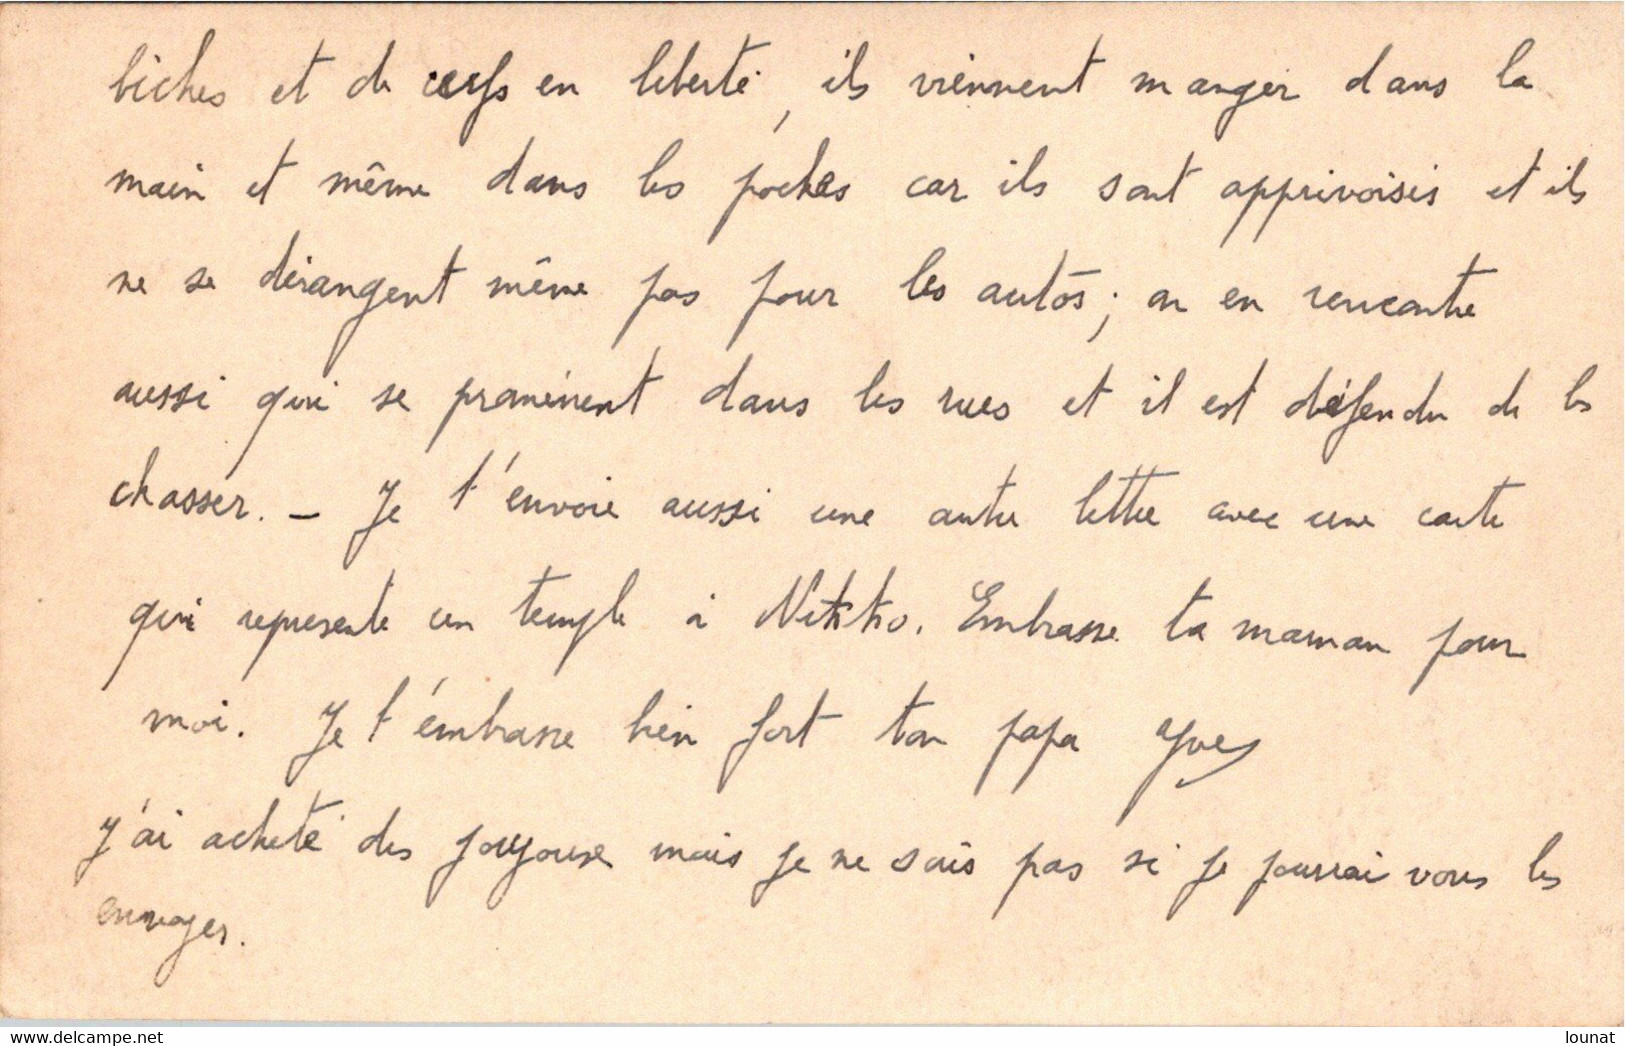 biches et de cerfs en liberté, ils viennent manger dans la
main et même dans les poches car ils sont apprivoisés et ils
ne se dérangent même pas pour les autos ; on en rencontre
aussi qui se promènent dans les rues et il est défendu de les
chasser. – Je t'envoie aussi une autre lettre avec une carte
qui represente un temple à Nikko. Embrasse ta maman pour
moi. Je t'embrasse bien fort ton papa Yves
J'ai acheté des joujoux mais je ne sais pas si je pourrai vous les
envoyer.
www.delcampe.net
lounat